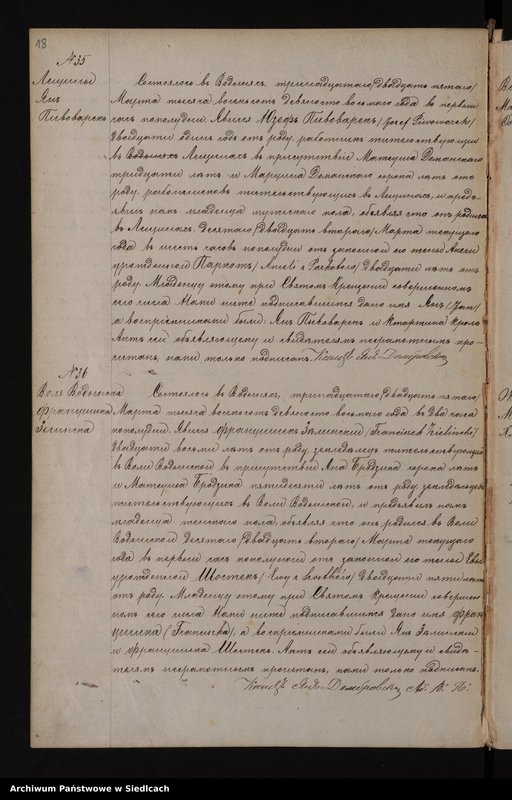 18
№35
Лещины
Янъ
Пивоварекъ
Состоялось въ Водыняхъ, тринадцатаго /двадцать пятаго/
Марта тысяча восемьсотъ девяносто восьмаго года въ первомъ
часъ пополудни. Явился Юзефъ Пивоварекъ, /Josef Piwowarek/
двадцати одинъ годъ отъ роду, работникъ жительствующій
въ Лещинахъ въ присутствіи Матеуша
тридцати лѣтъ и Марцина сорока лѣтъ отъ
роду, работниковъ жительствующихъ въ Лещинахъ, и предъ-
явилъ намъ младенца мужескаго пола, объявляя что онъ родился
въ Лещинахъ, десятаго /двадцать втораго/ Марта текущаго
года въ шесть часовъ пополудни отъ законной его жены Анели
урожденной Паркотъ, /Aneli z Parkotów/ двадцати лѣтъ отъ
роду. Младенцу этому при Святомъ Крещеніи совершенномъ
сего числа Нами ниже подписавшимся дано имя Янъ /Jan/
а воспріемниками были: Янъ Пивоварекъ и
Актъ сей объявляющему и свидѣтелямъ неграмотнымъ про-
читанъ, нами только подписанъ. Ксендзъ Домбровскій
№36
Воля Водынска
Францишка
Зелинска
Состоялось въ Водыняхъ, тринадцатаго /двадцать пятаго/
Марта тысяча восемьсотъ девяносто восьмаго года въ два часа
пополудни. Явился Францишекъ Зелинскій /Franciszek Zieliński/
двадцати восьми лѣтъ отъ роду, земледѣлецъ жительствующій
въ Воли Водынской въ присутствіи Яна Бродзика сорока лѣтъ
и Матеуша Бродзика пятидесяти лѣтъ отъ роду, земледѣльцевъ
жительствующихъ въ Воли Водынской, и предъявилъ намъ
младенца женскаго пола, объявляя что онъ родился въ Воли
Водынской десятаго /двадцать втораго/ Марта текущаго
года въ первомъ часъ пополудни отъ законной его жены Евы
урожденной Шостекъ, /Ewy z Szostków/ двадцати пяти лѣтъ
отъ роду. Младенцу этому при Святомъ Крещеніи совершен-
номъ сего числа Нами ниже подписавшимся дано имя Фран-
цишка (Franciszka), а воспріемниками были Янъ Зелинскій
и Францишка Шостекъ. Актъ сей объявляющему и свидѣ-
телямъ неграмотнымъ прочитанъ, нами только подписанъ.
Ксендзъ Домбровскій
Archiwum Państwowe w Siedlcach